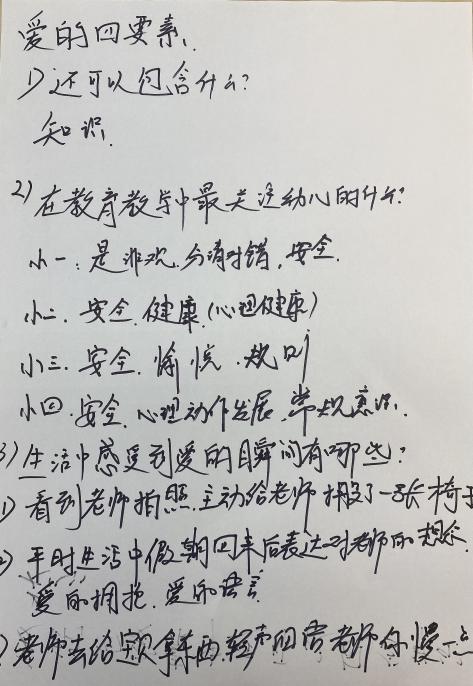 爱的四要素、
1)还可以包含什么?
知识.
2)在教育教学中最关注幼儿的什么?
小一:是非观.分清对错.安全.
小二.安全.健康.(心理健康)
小三.安全.愉悦.规则
小四.安全.心理动作发展.常规意识.
3)生活中感受到爱的瞬间有哪些?
1)看到老师拍照.主动给老师搬了一张椅子
2)平时生活中假期回来后表达对老师的想念.
爱的拥抱.爱的语言
)老师去给宝贝拿东西.轻声回答老师你慢一点